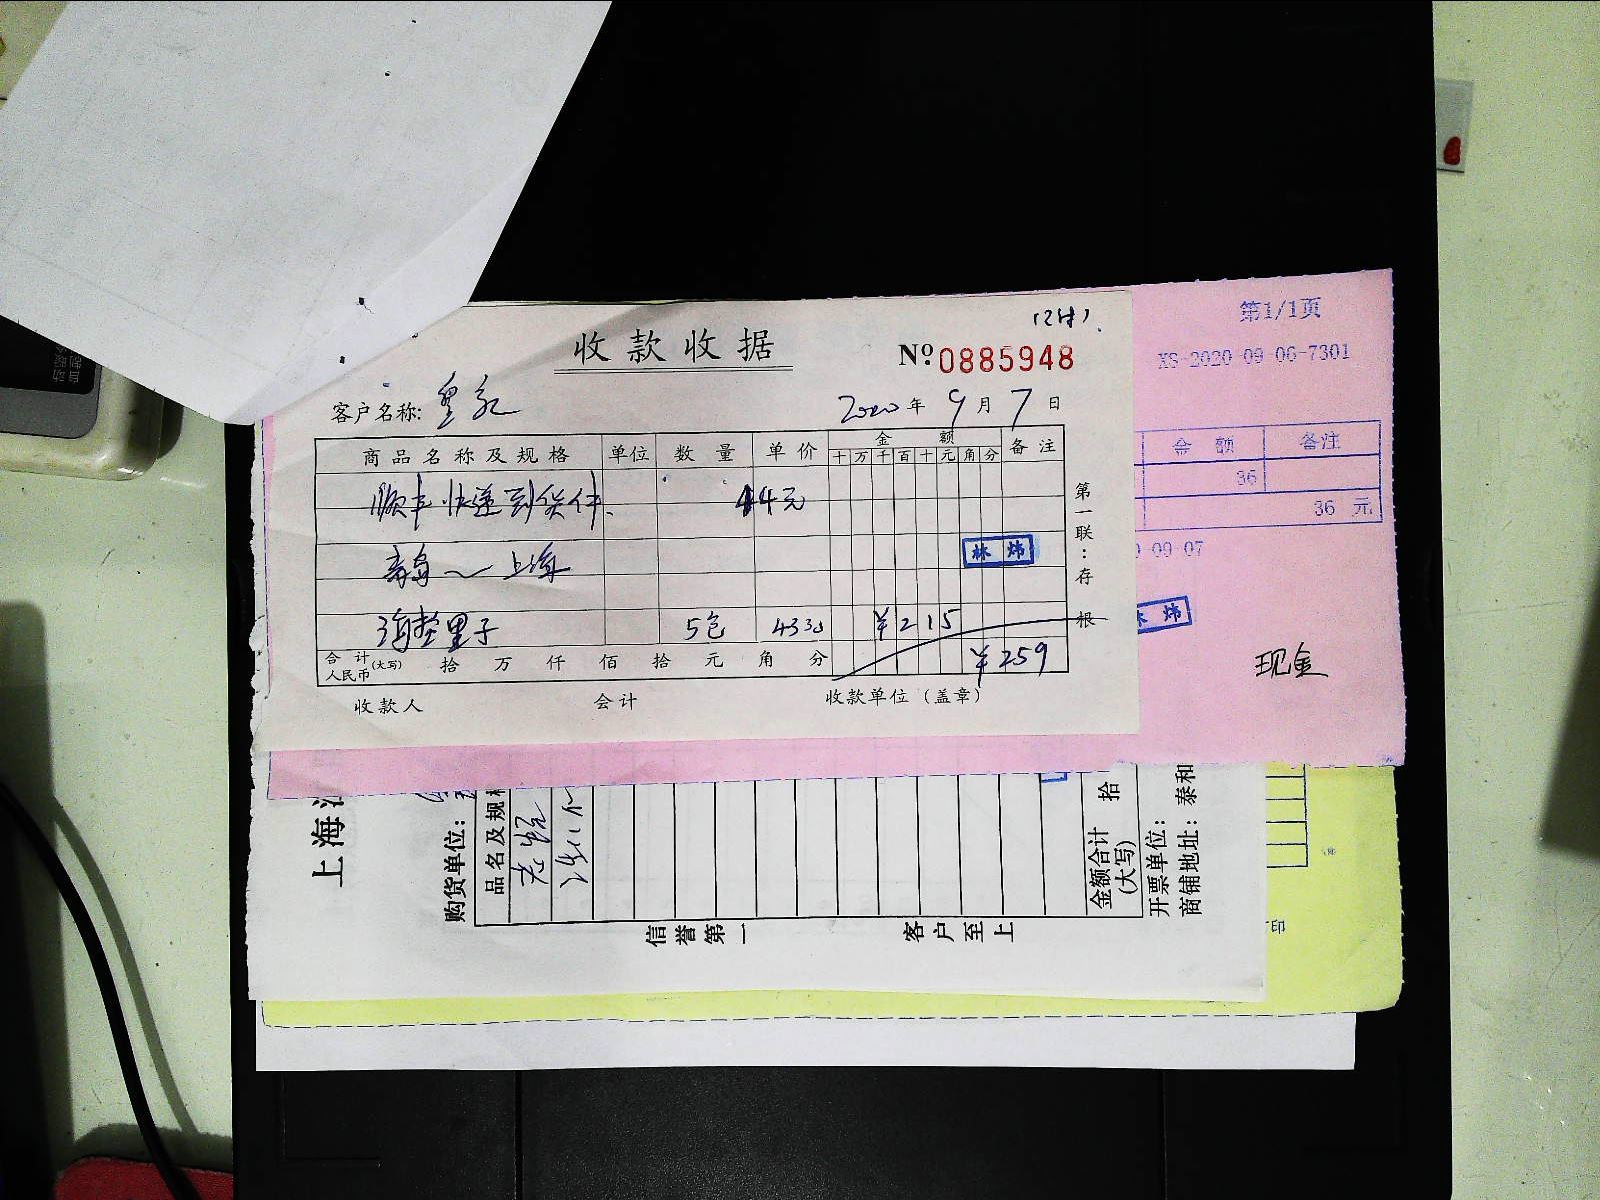 收款收据
№ 0885948
客户名称:
2020年9月7日
商品名称及规格 单位 数量 单价 金额 备注
十 万 千 百 十 元 角 分
顺丰快递到货件 44元
青岛～上海
林炜
5包 43元 ¥215
合计人民币(大写) 拾 万 仟 佰 拾 元 角 分 ¥259
收款人 会计 收款单位（盖章）
第一联：存根
第1/1页
XS-2020-09-06-7301
金额 备注
36
36 元
-09-07
炜
现金
上海
购货单位：
品名及规格
金额合计(大写) 拾
开票单位：
商铺地址：泰和
信誉第一 客户至上